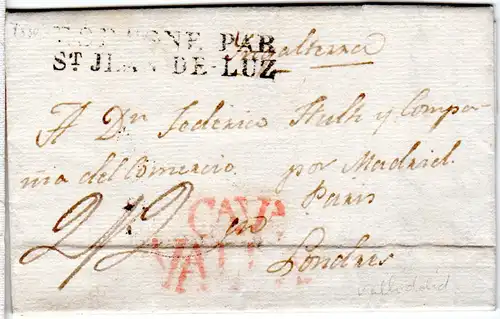 ESPAGNE PAR
ST JEAN-DE-LUZ
Inglaterra
A Dn Federico Huth y Compa-
nia del Comercio. por Madrid.
Paris
2/2 en
CAVA
Londres
Valladolid